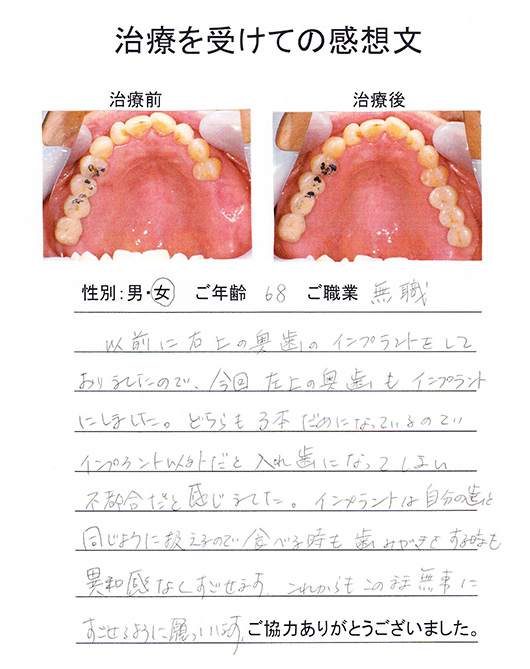 治療を受けての感想文
治療前 治療後
性別:男・女 ご年齢 68 ご職業 無職
以前に右上の奥歯のインプラントをして
おりましたので、今回 左上の奥歯もインプラント
にしました。どちらも3本だめになっているので
インプラント以外だと入れ歯になってしまい
不都合だと感じました。インプラントは自分の歯と
同じように扱えるので食べる時も歯みがきをする時も
異和感なくすごせます。これからもこの まま無事に
すごせるように願っています。ご協力ありがとうございました。